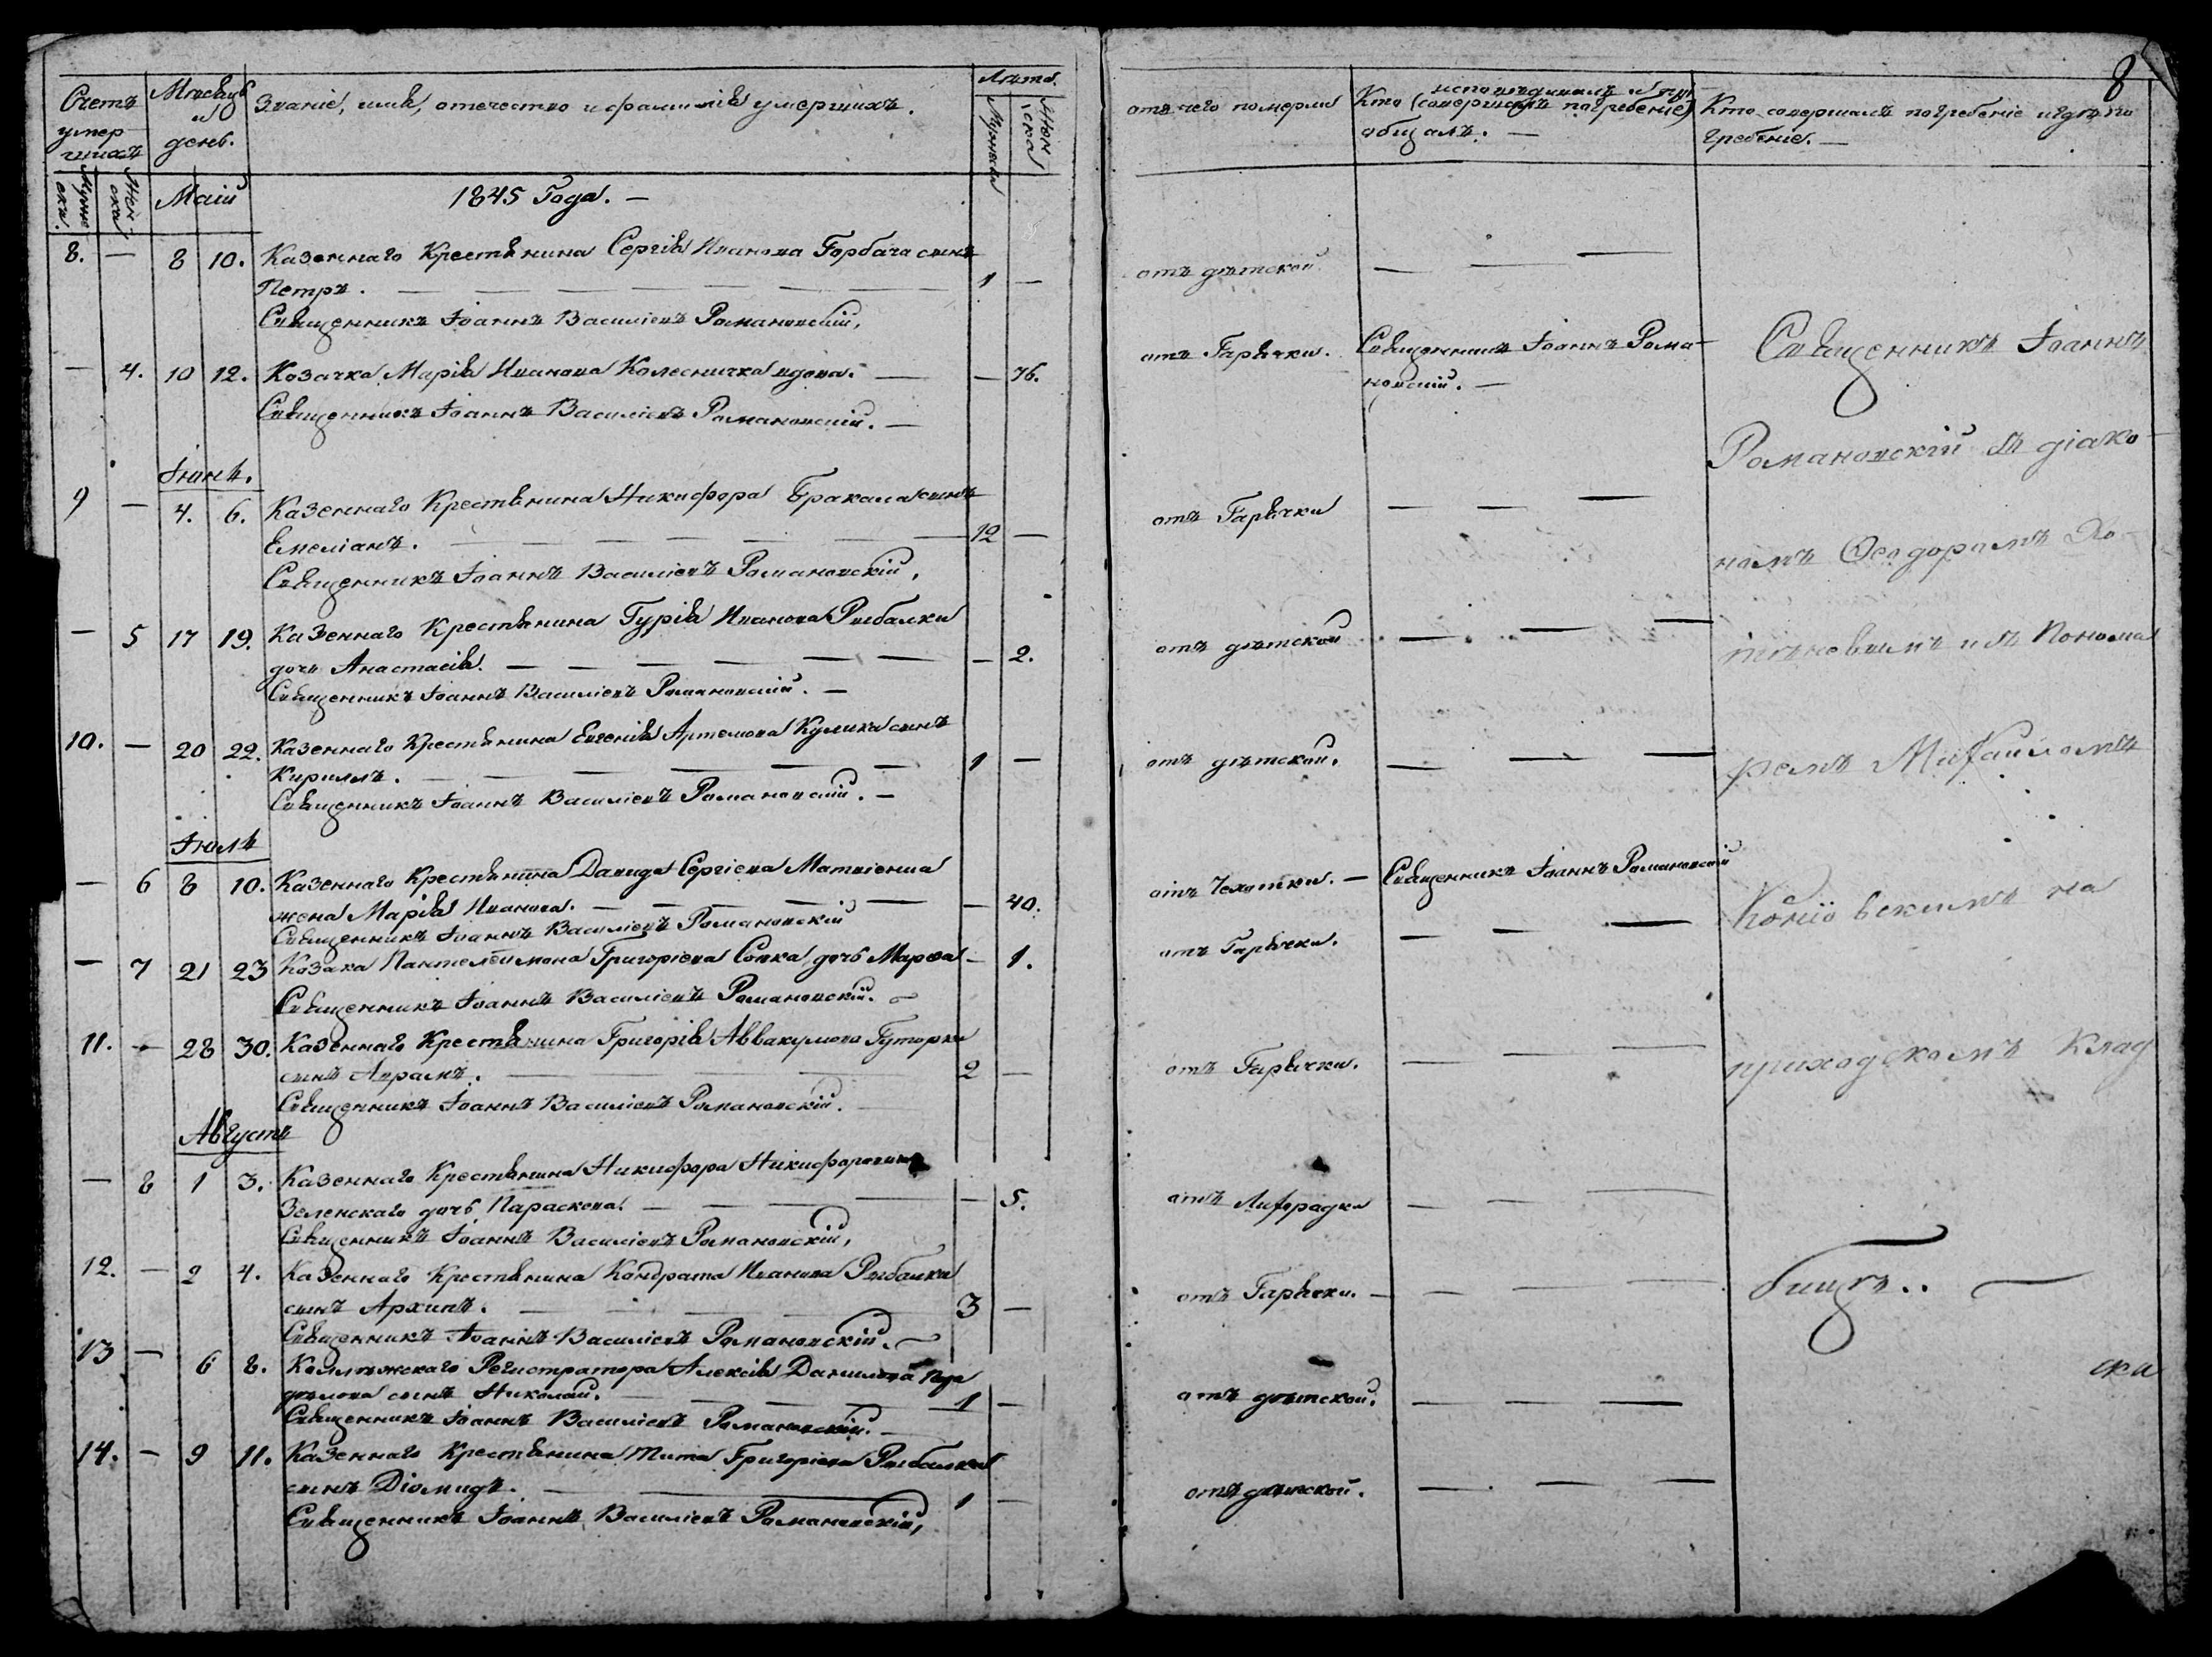 Счетъ умер
шихъ
Мѣсяцъ
и
день.
Званіе, имя, отечество и фамилія умершихъ.
Лѣта.
Мужескъ
Женска
Мужеска.
Женска
Маій
1845 Года. —
8. — 8 10. Казеннаго Крестьянина Сергія Иванова Горбача сынъ
Петръ. — 1 —
Священникъ Іоаннъ Василіевъ Романовскій,
— 4. 10 12. Козачка Марія Иванова Колесничка вдова. — — 76.
Священникъ Іоаннъ Василіевъ Романовскій. —
Іюнь.
9 — 4. 6. Казеннаго Крестьянина Никифора сынъ
Емеліанъ. — 12 —
Священникъ Іоаннъ Василіевъ Романовскій,
— 5 17 19. Казеннаго Крестьянина Гурія Иванова Рыбалки
дочь Анастасія. — — 2.
Священникъ Іоаннъ Василіевъ Романовскій. —
10. — 20 22. Казеннаго Крестьянина Евгенія Артемова Кулика сынъ
Кириллъ. — 1 —
Священникъ Іоаннъ Василіевъ Романовскій. —
Іюль
— 6 8 10. Казеннаго Крестьянина Давида Сергіева Матвіенка
жена Марія Иванова. — — 40.
Священникъ Іоаннъ Василіевъ Романовскій
— 7 21 23 Козака Пантелеимона Григоріева Сопка дочь Марѳа — 1.
Священникъ Іоаннъ Василіевъ Романовскій. —
11. — 28 30. Казеннаго Крестьянина Григорія Аввакумова Гуторки
сынъ Аврамъ. — 2 —
Священникъ Іоаннъ Василіевъ Романовскій.
Августъ
— 8 1 3. Казеннаго Крестьянина Никифора Никифорова
Зеленскаго дочь Параскева. — — 5.
Священникъ Іоаннъ Василіевъ Романовскій,
12. — 2 4. Казеннаго Крестьянина Кондрата Иванова Рыбалки
сынъ Архипъ. — 3 —
Священникъ Іоаннъ Василіевъ Романовскій. —
13 — 6 8. Коллѣжскаго Регистратора Алексія Данилова
сынъ Николай. — 1 —
Священникъ Іоаннъ Василіевъ Романовскій. —
14. — 9 11. Казеннаго Крестьянина Тита Григоріева Рыбалки
сынъ Діомидъ. — 1 —
Священникъ Іоаннъ Василіевъ Романовскій,
8
отъ чего померли
исповѣдывалъ и прі
Кто (совершалъ погребеніе)
общалъ. —
Кто совершалъ погребеніе и гдѣ по
гребеніе. —
отъ дѣтской — — —
отъ Гарячки. Священникъ Іоаннъ Рома-
новскій. —
отъ Гарячки — — —
отъ дѣтской — — —
отъ дѣтской. — — —
отъ Чехотки. — Священникъ Іоаннъ Романовскій
отъ Гарячки. — — —
отъ Гарячки. — — —
отъ Лихорадки — — —
отъ Гарячки. — — — —
отъ дѣтской. — — —
отъ дѣтской. — — —
Священникъ Іоаннъ
Романовскій съ діако-
номъ Ѳеодоромъ
и съ Понома
ремъ Михаиломъ
на
приходскомъ Клад
бищѣ.. —